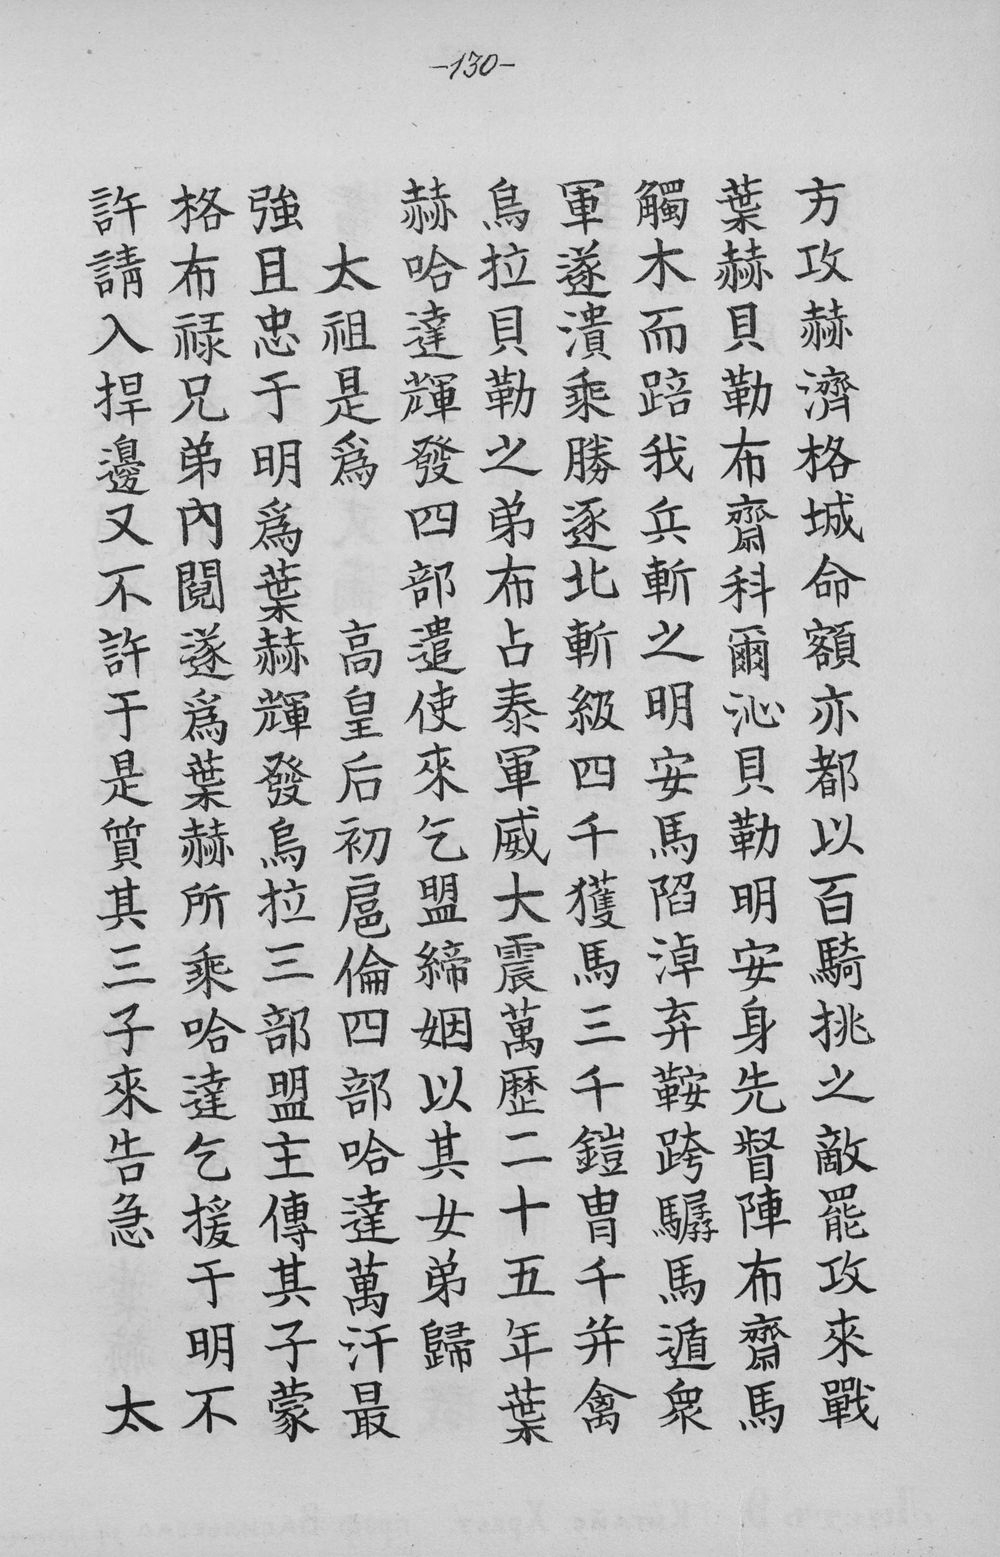 -130-
方攻赫濟格城命額亦都以百騎挑之敵罷攻來戰
葉赫貝勒布齋科爾沁貝勒明安身先督陣布齋馬
觸木而踣我兵斬之明安馬陷淖弃鞍跨驏馬遁眾
軍遂潰乘勝逐北斬級四千獲馬三千鎧胄千并禽
烏拉貝勒之弟布占泰軍威大震萬歷二十五年葉
赫哈達輝發四部遣使來乞盟締姻以其女弟歸
太祖是爲　高皇后初扈倫四部哈達萬汗最
強且忠于明爲葉赫輝發烏拉三部盟主傳其子蒙
格布祿兄弟內鬩遂爲葉赫所乘哈達乞援于明不
許請入捍邊又不許于是質其三子來告急　太